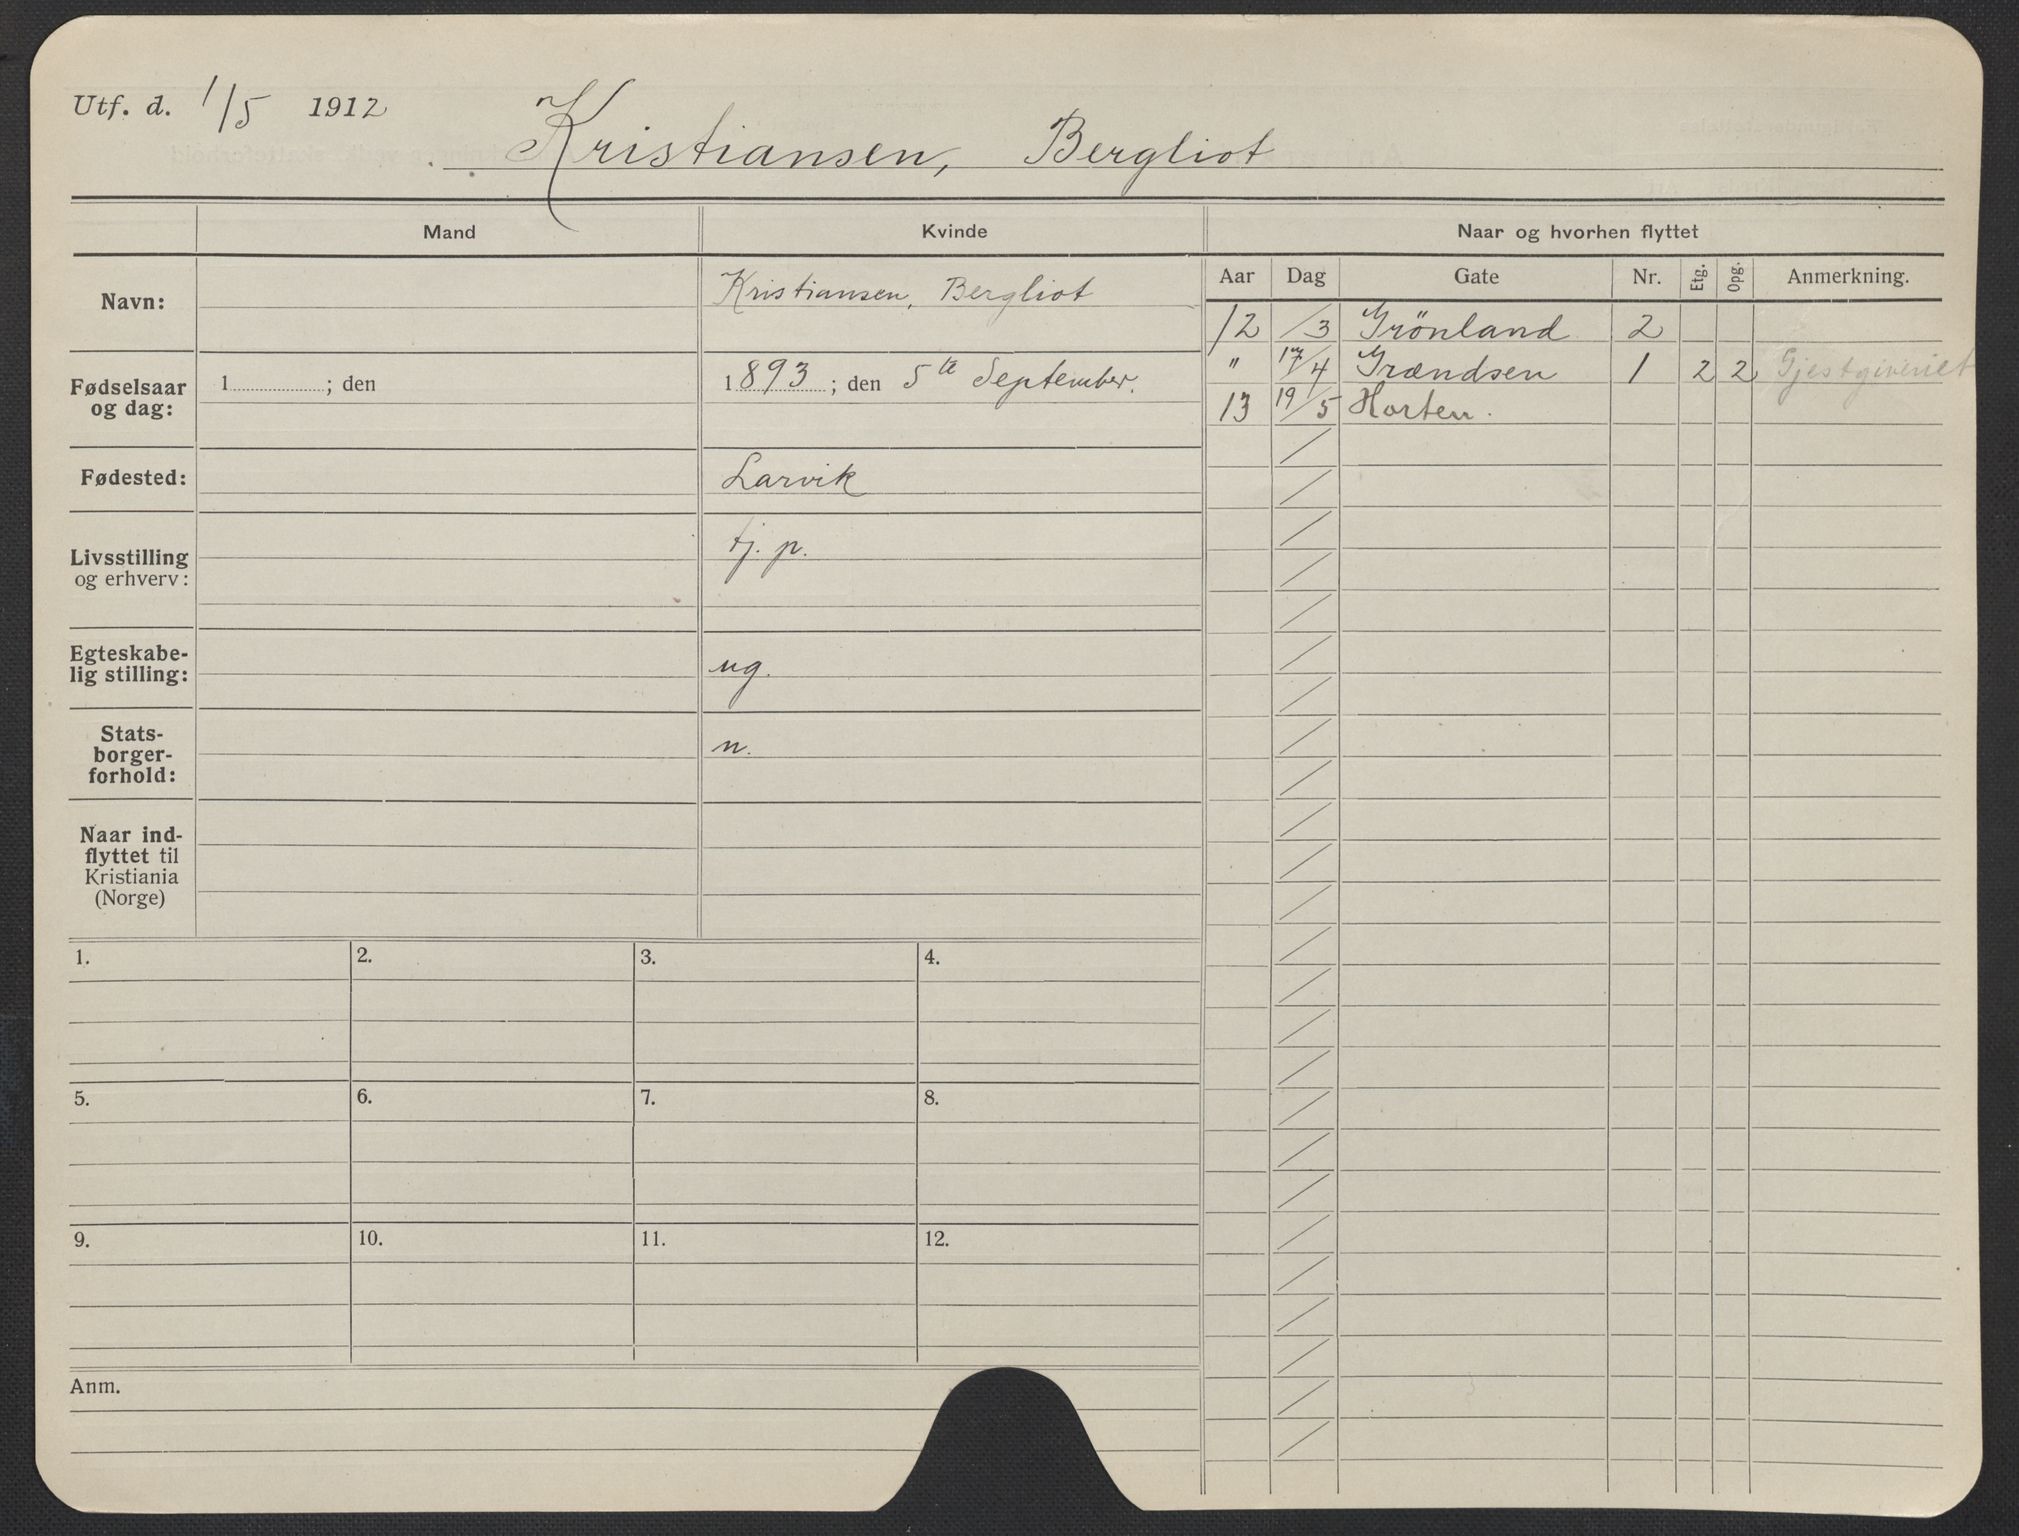 Utf. d. 1/5 1912
Kristiansen, Bergliot
Mand Kvinde Naar og hvorhen flyttet
Aar Dag Gate Nr. Etg. Opg. Anmerkning.
Navn: Kristiansen, Bergliot
12 /3 Grönland 2
" 17/4 Grændsen 1 2 2 Gjestgiveriet
13 19/5 Horten.
Fødselsaar
og dag:
1 ; den
1893 ; den 5te September.
Fødested: Larvik
Livsstilling
og erhverv:
tj. p.
Egteskabe-
lig stilling:
ug.
Stats-
borger-
forhold:
n.
Naar ind-
flyttet til
Kristiania
(Norge)
1. 2. 3. 4.
5. 6. 7. 8.
9. 10. 11. 12.
Anm.